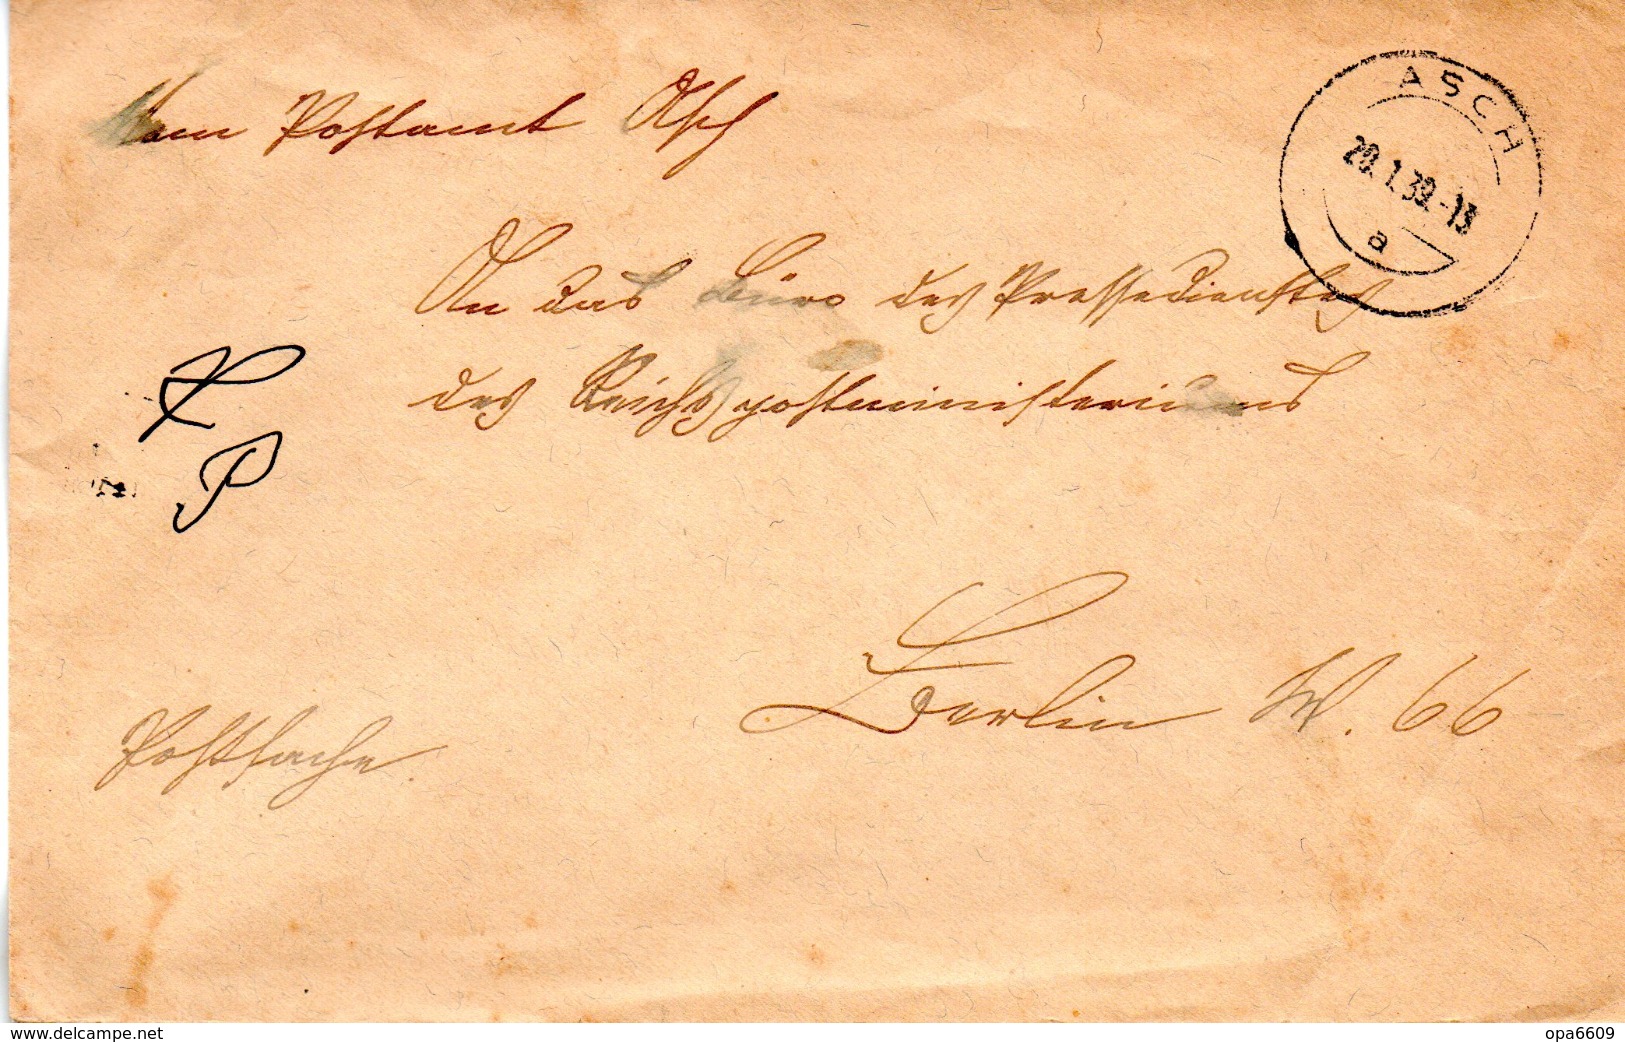 Vom Postamt Asch
ASCH
20.1.39.-13
a
An das Büro des Pressedienstes
des Reichspostministeriums
P
Berlin W. 66
Postsache.
delcampe.net
opa6609